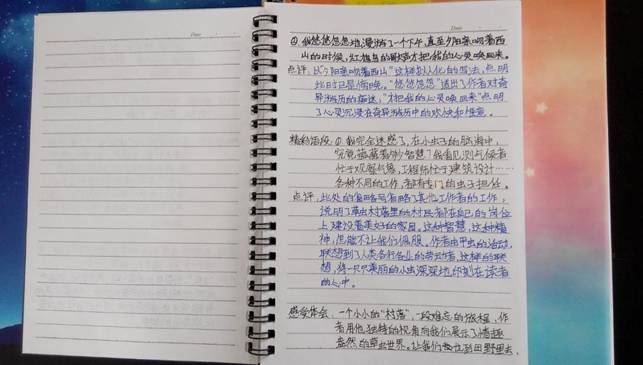 Date
Date
② 我悠悠忽忽地漫游了一个下午,直至夕阳亲吻着西
山的时候,红鸠鸟的歌声才把我的心灵唤回来。
点评:以"夕阳亲吻着西山"这样拟人化的写法,点明
此时已是傍晚。"悠悠忽忽"道出了作者对奇
异游历的痴迷,"才把我的心灵唤回来"点明
了心灵沉浸在奇异游历中的欢快和惬意。
精彩语段:① 我完全迷惑了,在小虫子的脑海中,
究竟蕴藏着多少智慧?我看见测气候者
忙于观察气象,工程师忙于建筑设计……
各种不同的工作,都有专门的虫子担任。
点评:此处的省略号省略了其他工作者的工作,
说明了草虫村落里的村民都在自己的岗位
上建设着美好的家园。这种智慧,这种精
神,怎能不让我们佩服。作者由甲虫的活动
联想到了人类各行各业的劳动者,这样的联
想,将一只只美丽的小虫深深地印刻在读者
的心中。
感受体会:一个小小的"村落",一段难忘的旅程,作
者用他独特的视角向我们展示了情趣
盎然的草虫世界。让我们也到田野里去,